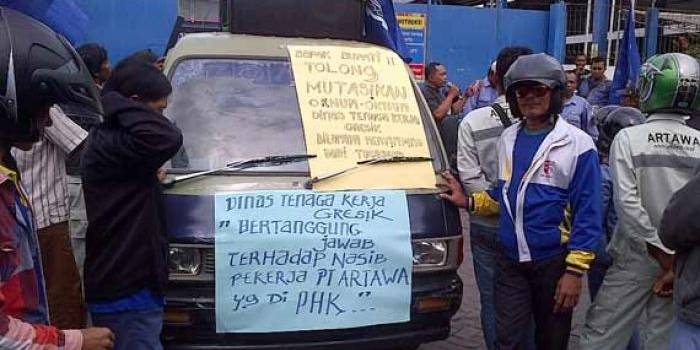 BAPAK BUPATI !!
TOLONG
MUTASIKAN
OKNUM-OKNUM
DINAS TENAGA KERJA
GRESIK
DINAS TENAGA KERJA
GRESIK
" BERTANGGUNG
JAWAB
TERHADAP NASIB
PEKERJA PT ARTAWA
Yg Di PHK...
ARTAWA
ARTAWA